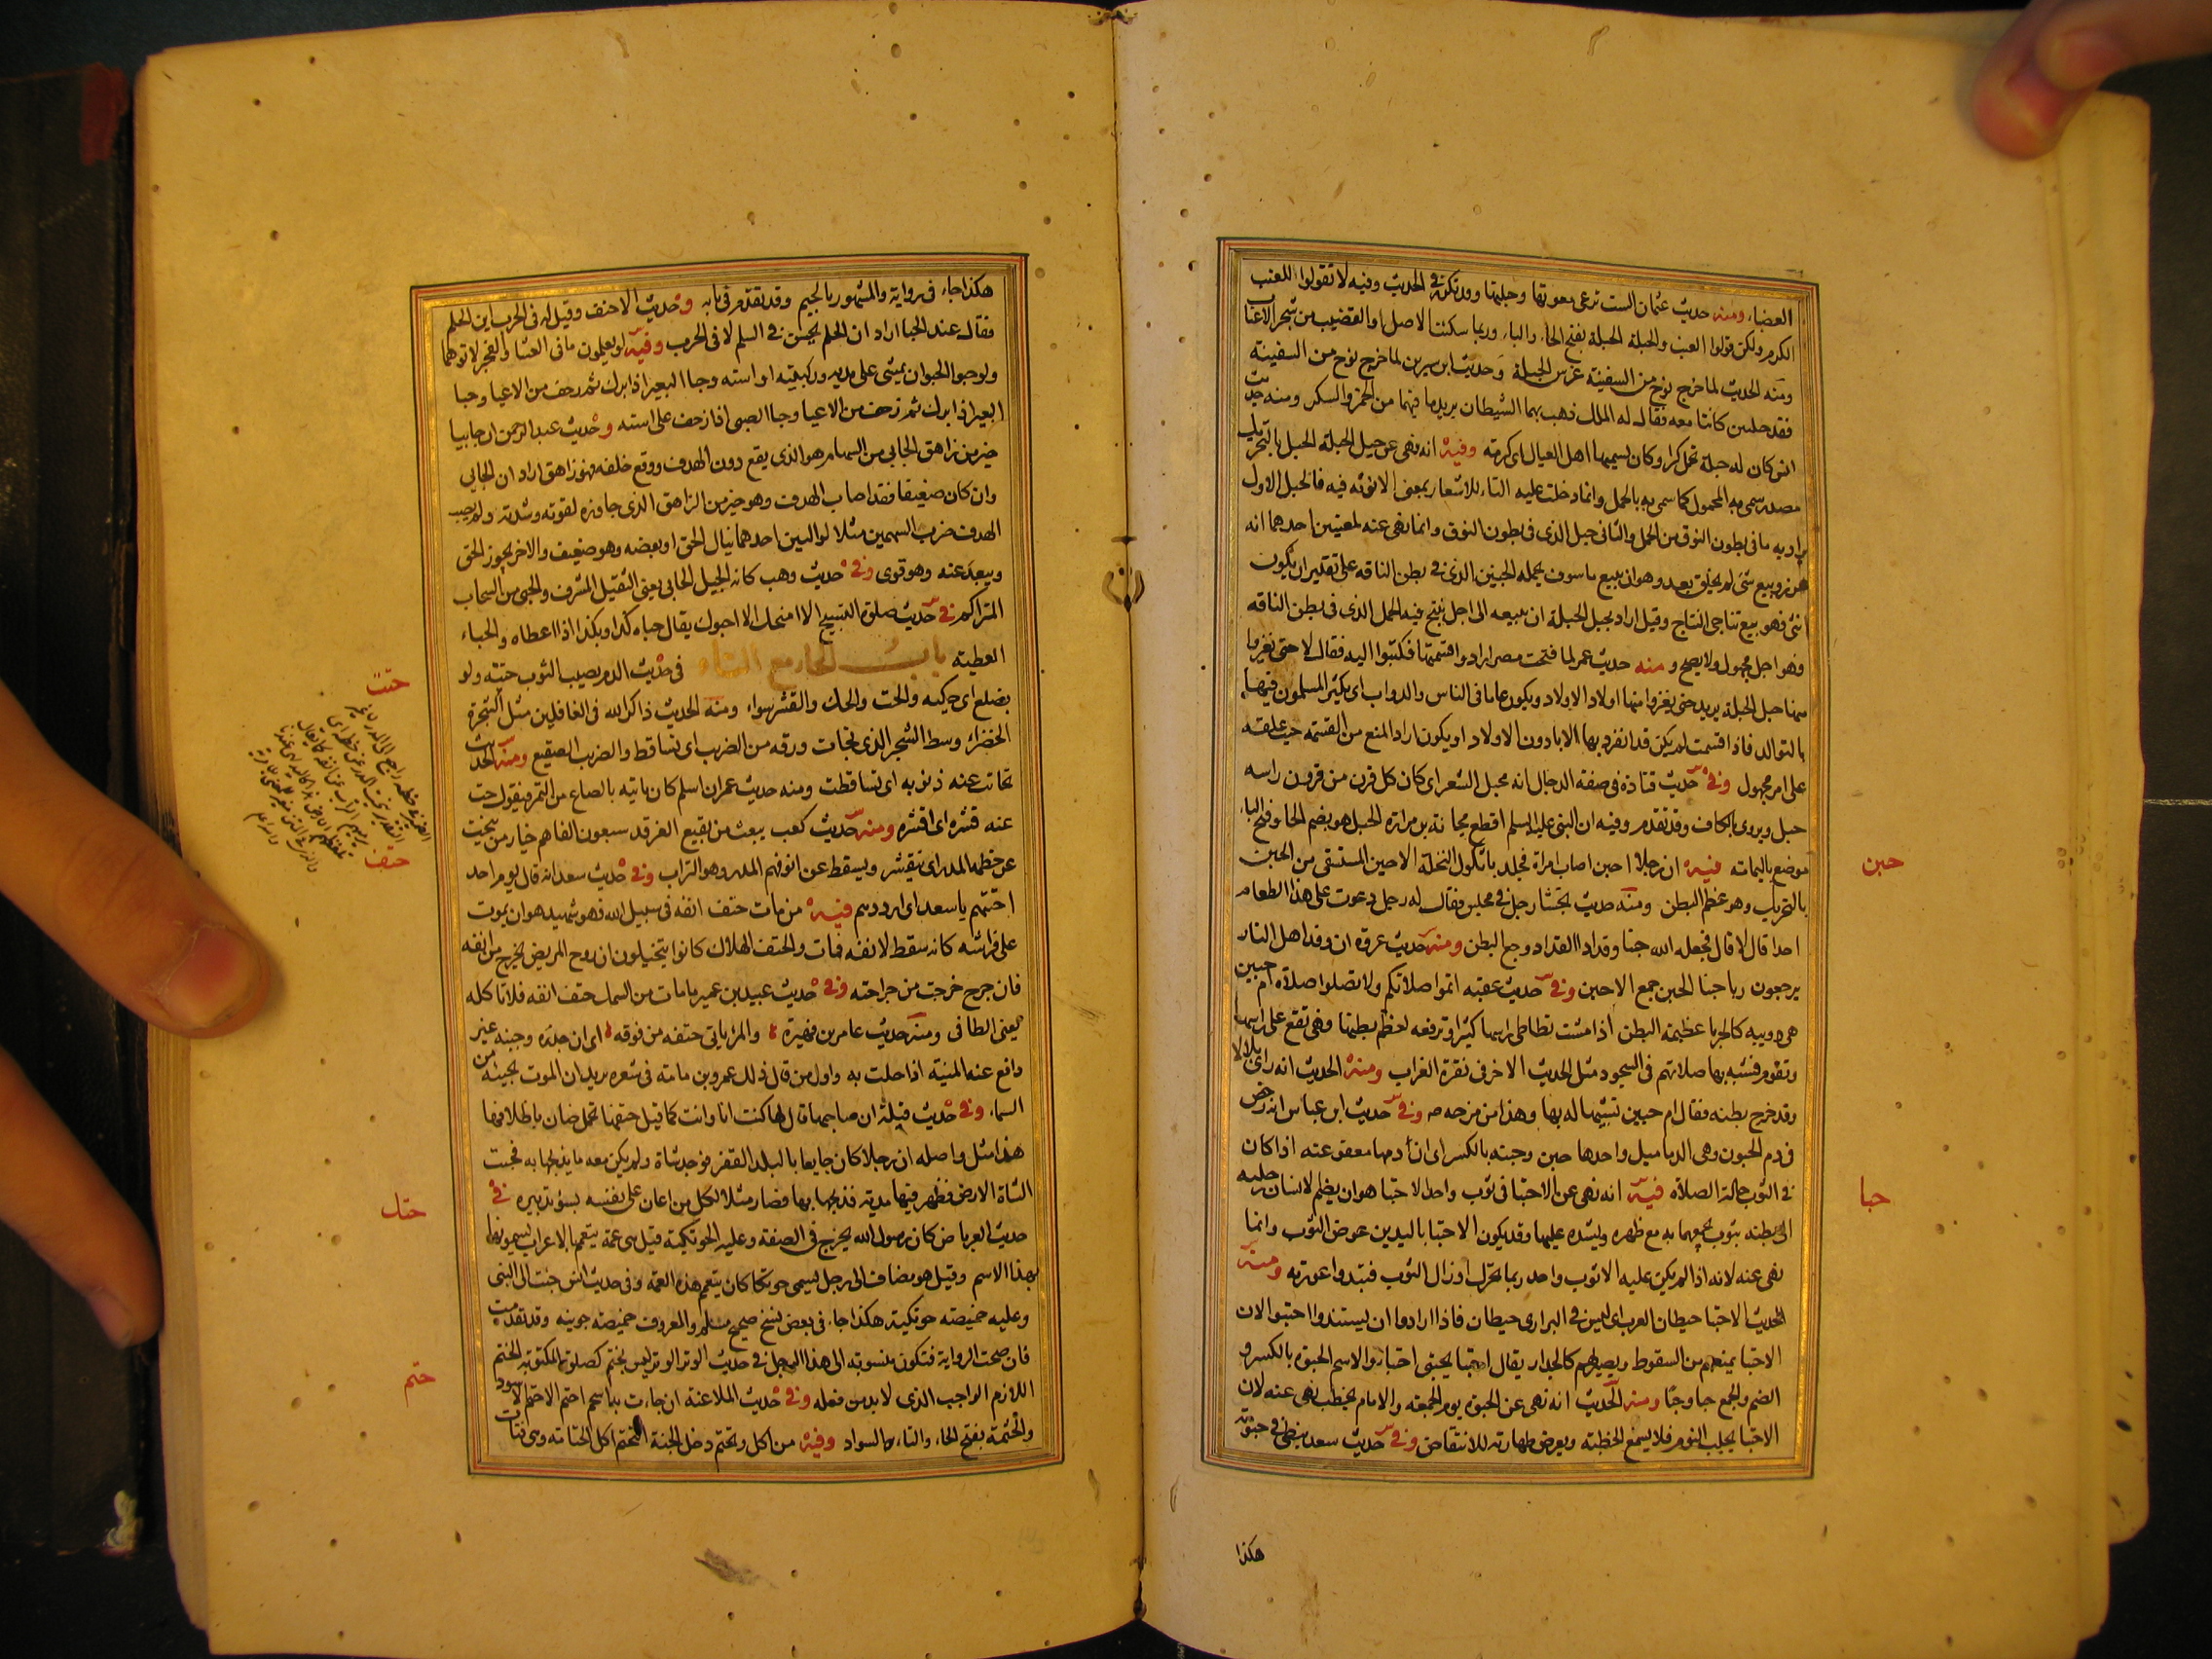 العضاه ومنه حديث عثمان الست ترعى معوتها وحبلتها وقد تكرر فى الحديث وفيه لا تقولوا للعنب
الكرم ولكن قولوا العنب والحبلة الحبلة بفتح الحاء والباء وربما سكنت الاصل او القضيب من شجر الاعناب
ومنه الحديث لما خرج نوح من السفينة غرس الحبلة وحديث ابن سيرين لما خرج نوح من السفينة
فقد حبلتين كانتا معه فقال له الملك ذهب بهما الشيطان يريد ما فيهما من الخمر والسكر ومنه حديث
انس كان له حبلة تحمل كرا وكان يسميها ام العيال اى كرمة وفيه انه نهى عن حبل الحبلة الحبل بالتحريك
مصدر سمى به المحمول كما سمى به بالحمل وانما دخلت عليه التاء للاشعار بمعنى الانوثه فيه فالحبل الاول
يراد به ما فى بطون النوق من الحمل والثانى حبل الذى فى بطون النوق وانما نهى عنه لمعنيين احدهما انه
غرر وبيع شئ لم يخلق بعد وهو ان يبيع ما سوف يحمله الجنين الذى فى بطن الناقه على تقدير ان يكون
انثى فهو بيع نتاج النتاج وقيل اراد بحبل الحبلة ان يبيعه الى اجل ينتج فيه الحمل الذى فى بطن الناقه
وهو اجل مجهول ولا يصح ومنه حديث عمر لما فتحت مصر ارادوا قسمتها فكتبوا اليه فقال لا حتى يغزوا
منها حبل الحبلة يريد حتى يغزوا منها اولاد الاولاد ويكون عاما فى الناس والدواب اى يكثر المسلمون فيها
بالتوالد فاذا قسمت لم يكن قد انفرد بها الابا دون الاولاد او يكون اراد المنع من القسمه حيث علقه
على امر مجهول وفى حديث قتادة فى صفة الدجال انه محبل الشعر اى كان كل قرن من قرون راسه
حبل ويروى بالكاف وقد تقدم وفيه ان النبى عليه السلم اقطع مجاعة بن مرارة الحبل هو بضم الحا وفتح البا
موضع باليمامه فيه ان رجلا احبن اصاب امراة فجلد باثكول النخلة الاحبن المستسقى من الحبن
بالتحريك وهو عظم البطن ومنه حديث تجشا رجل فى مجلس فقال له رجل دعوت على هذا الطعام
احدا قال لا قال فجعله الله حبنا وقدادا القداد وجع البطن ومنه حديث عروه ان وفد اهل النار
يرجعون زبا حبنا الحبن جمع الاحبن وفى حديث عقبه اتموا صلاتكم ولا تصلوا صلاة ام حبين
هى دويبه كالحربا عظيمة البطن اذا مشت تطاطى راسها كثيرا وترفعه لعظم بطنها وهى تقع على راسها
وتقوم فشبه بها صلاتهم فى السجود مثل الحديث الاخر فى نقرة الغراب ومنه الحديث انه راى بلالا
وقد خرج بطنه فقال ام حبين تشبيها له بها وهذا من مزحه وفى حديث ابن عباس انه رخص
فى دم الحبون وهى الدماميل واحدها حبن وحبنه بالكسر اى ان دمها معفو عنه اذا كان
فى الثوب حالة الصلاه فيه انه نهى عن الاحتبا فى ثوب واحد الاحتبا هو ان يضم الانسان رجليه
الى بطنه بثوب يجمعهما به مع ظهره ويشده عليها وقد يكون الاحتبا باليدين عوض الثوب وانما
نهى عنه لانه اذا لم يكن عليه الا ثوب واحد ربما تحرك او زال الثوب فتبدوا عورته ومنه
الحديث الاحتبا حيطان العرب اى ليس فى البرارى حيطان فاذا ارادوا ان يستندوا احتبوا لان
الاحتبا يمنعهم من السقوط ويصير لهم كالجدار يقال احتبا يحتبى احتباء والاسم الحبوه بالكسر و
الضم والجمع حبا وحبا ومنه الحديث انه نهى عن الحبوة يوم الجمعه والامام يخطب نهى عنه لان
الاحتبا يجلب النوم فلا يسمع الخطبة ويعرض طهارته للانتقاض وفى حديث سعد نبطى فى حبوته
حبن
حبا
هكذا
هكذا جاء فى رواية والمشهور بالجيم وقد تقدم فى بابه وحديث الاحنف وقيل له فى الحرب اين الحلم
فقال عند الحبا اراد ان الحلم يحسن فى السلم لا فى الحرب وفيه لو يعلمون ما فى العشا والفجر لاتوهما
ولو حبوا الحبو ان يمشى على يديه وركبتيه او استه وحبا البعير اذا برك ثم زحف من الاعيا وحبا
البعير اذا برك ثم زحف من الاعيا وحبا الصبى اذا زحف على استه وحديث عبد الرحمن ان حابيا
خير من زاهق الحابى من السهام هو الذى يقع دون الهدف ووقع خلفه فهو زاهق اراد ان الحابى
وان كان ضعيفا فقد اصاب الهدف وهو خير من الزاهق الذى جاوزه لقوته وشدته ولم يصب
الهدف ضرب السهمين مثلا لواليين احدهما ينال الحق او بعضه وهو ضعيف والاخر يجوز الحق
ويبعد عنه وهو قوى وفى حديث وهب كانه الجبل الحابى يعنى الثقيل المشرف والحبى من السحاب
المتراكم فى حديث صلوة التسبيح الا امنحك الا احبوك يقال حباه كذا وبكذا اذا اعطاه والحباء
العطية باب الحاء مع التاء فى حديث الدم يصيب الثوب حتيه ولو
بضلع اى حكيه والحت والحك والقشر سواء ومنه الحديث ذاكر الله فى الغافلين مثل الشجرة
الخضراء وسط الشجر الذى تحات ورقه من الضريب اى تساقط والضريب الصقيع ومنه الحديث
تحاتت عنه ذنوبه اى تساقطت ومنه حديث عمر ان اسلم كان ياتيه بالصاع من التمر فيقول حت
عنه قشره اى اقشره ومنه حديث كعب يبعث من بقيع الغرقد سبعون الفا هم خيار من ينحت
عن خطمه المدر اى ينقشر ويسقط عن انوفهم المدر وهو التراب وفى حديث سعد انه قال يوم احد
احتتهم يا سعد اى ارددهم فيه من مات حتف انفه فى سبيل الله فهو شهيد هو ان يموت
على فراشه كانه سقط لانفه فمات والحتف الهلاك كانوا يتخيلون ان روح المريض تخرج من انفه
فان جرح خرجت من جراحته وفى حديث عبيد بن عمير ما مات من السمك حتف انفه فلا تاكله
يعنى الطافى ومنه حديث عامر بن فهيرة والمرء ياتى حتفه من فوقه اى ان حذره وجبنه غير
دافع عنه المنية اذا حلت به واول من قال ذلك عمرو بن مامه فى شعره يريد ان الموت يجيئه من
السماء وفى حديث قيلة ان صاحبها قال لها كنت انا وانت كما قيل حتفها تحمل ضان باظلافها
هذا مثل واصله ان رجلا كان جايعا بالبلد القفر فوجد شاة ولم يكن معه ما يذبحها به فبحثت
الشاة الارض فظهر فيها مدية فذبحها بها فصار مثلا لكل من اعان على نفسه بسؤ تدبيره فى
حديث العرباض كان رسول الله يخرج فى الصفة وعليه الحوتكية قيل هى عمة يتعممها الاعراب يسمونها
بهذا الاسم وقيل هو مضاف الى رجل يسمى حوتكا كان يتعمم هذه العمة وفى حديث انس جئت الى النبى
وعليه خميصة حوتكية هكذا جاء فى بعض نسخ صحيح مسلم والمعروف خميصة جونية وقد تقدمت
فان صحت الرواية فتكون منسوبة الى هذا الرجل فى حديث الوتر الوتر ليس بحتم كصلوة المكتوبة الحتم
اللازم الواجب الذى لا بد من فعله وفى حديث الملاعنة ان جاءت به اسحم احتم الاحتم الاسود
والحتمة بفتح الحاء والتاء السواد وفيه من اكل وتحتم دخل الجنة التحتم اكل الحتامة وهى فتات
حتت
حتف
حتك
حتم